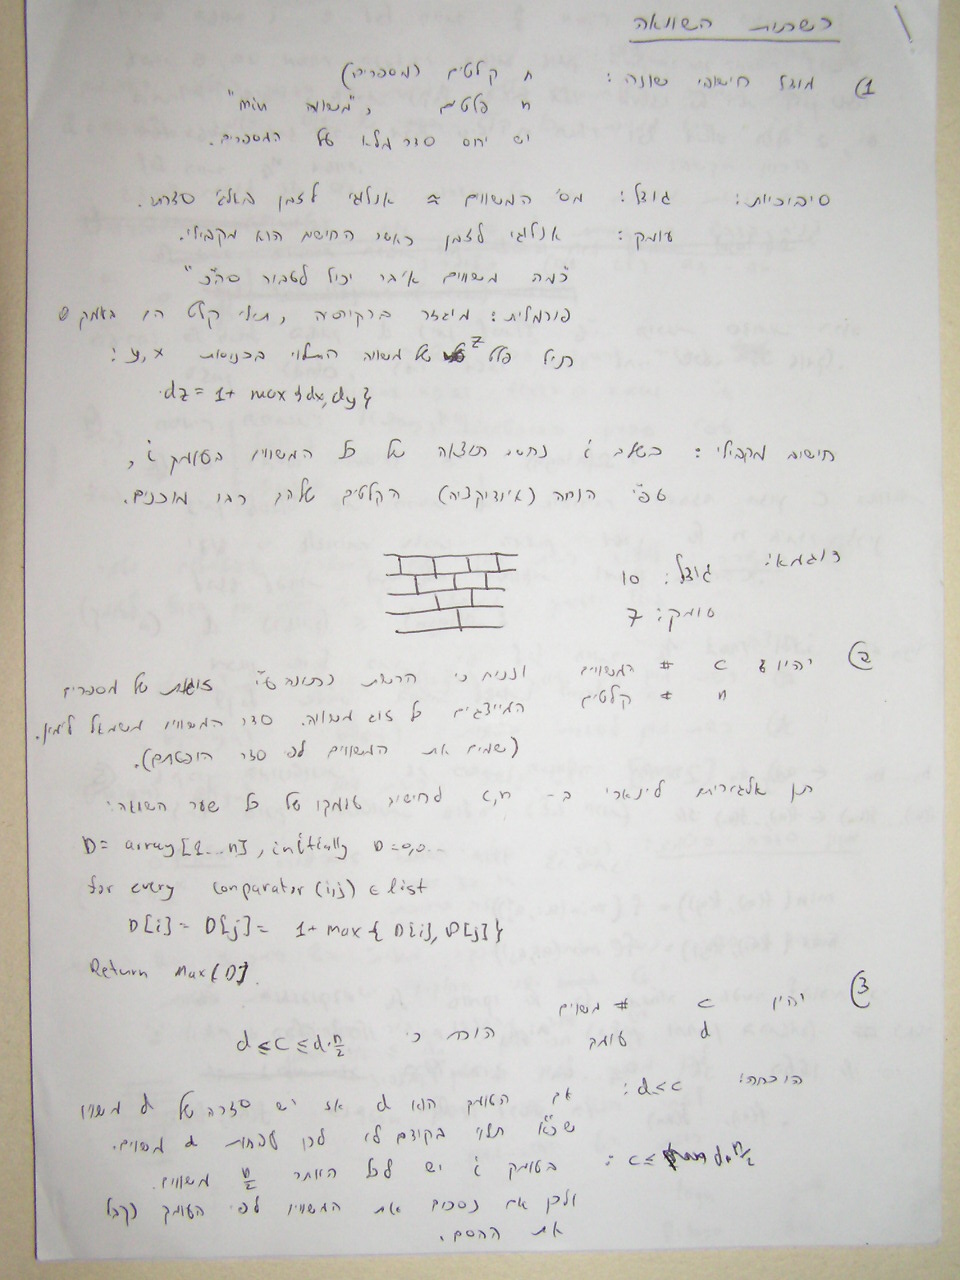 רשתות השוואה
(1 מודל חישובי שונה: n קלטים (מספרים)
n פלטים, "משווה min"
יש יחס סדר מלא על המספרים.
סיבוכיות: גודל: מס' המשווים ≈ אנלוגי לזמן באלג' סדרתי.
עומק: אנלוגי לזמן כאשר החישוב הוא מקבילי.
"כמה משווים איבר יכול לעבור סה"כ"
פורמלית: מוגדר ברקורסיה, תילי קלט הן בעומק 0
תיל פלט z של משווה התלוי בכניסות x, y:
dz = 1+ max{dx,dy}.
חישוב מקבילי: בשלב i נחשב תוצאה של כל המשווים בעומק i,
שע"פ הנחה (אינדוקציה) הקלטים שלהם כבר מוכנים.
דוגמא: גודל: 10
עומק: 7
(2 יהיו c # המשווים ונניח כי הרשת נתונה ע"י זוגות של מספרים
n # קלטים המייצגים כל זוג משווה. סדר המשווים משמאל לימין.
(שמים את המשווים לפי סדר הופעתם).
תן אלגוריתם לינארי ב- c,n לחישוב עומקו של כל שער השוואה:
D= array[1...n], initially D=0,0...
for every comparator (i,j) ∈ list
D[i]= D[j]= 1+max{D[i], D[j]}
Return Max{D}.
(3 יהיו c # משווים
d עומק הוכח כי d ≤ c ≤ d·n/2
הוכחה: d≤c: אם העומק הוא d אז יש סדרה של d משווים
שכ"א תלוי בקודם לו לכן לפחות d משווים.
c ≤ d·n/2: בעומק i יש לכל היותר n/2 משווים.
ולכן אם נסכום את המשווים לפי העומק נקבל
את החסם.